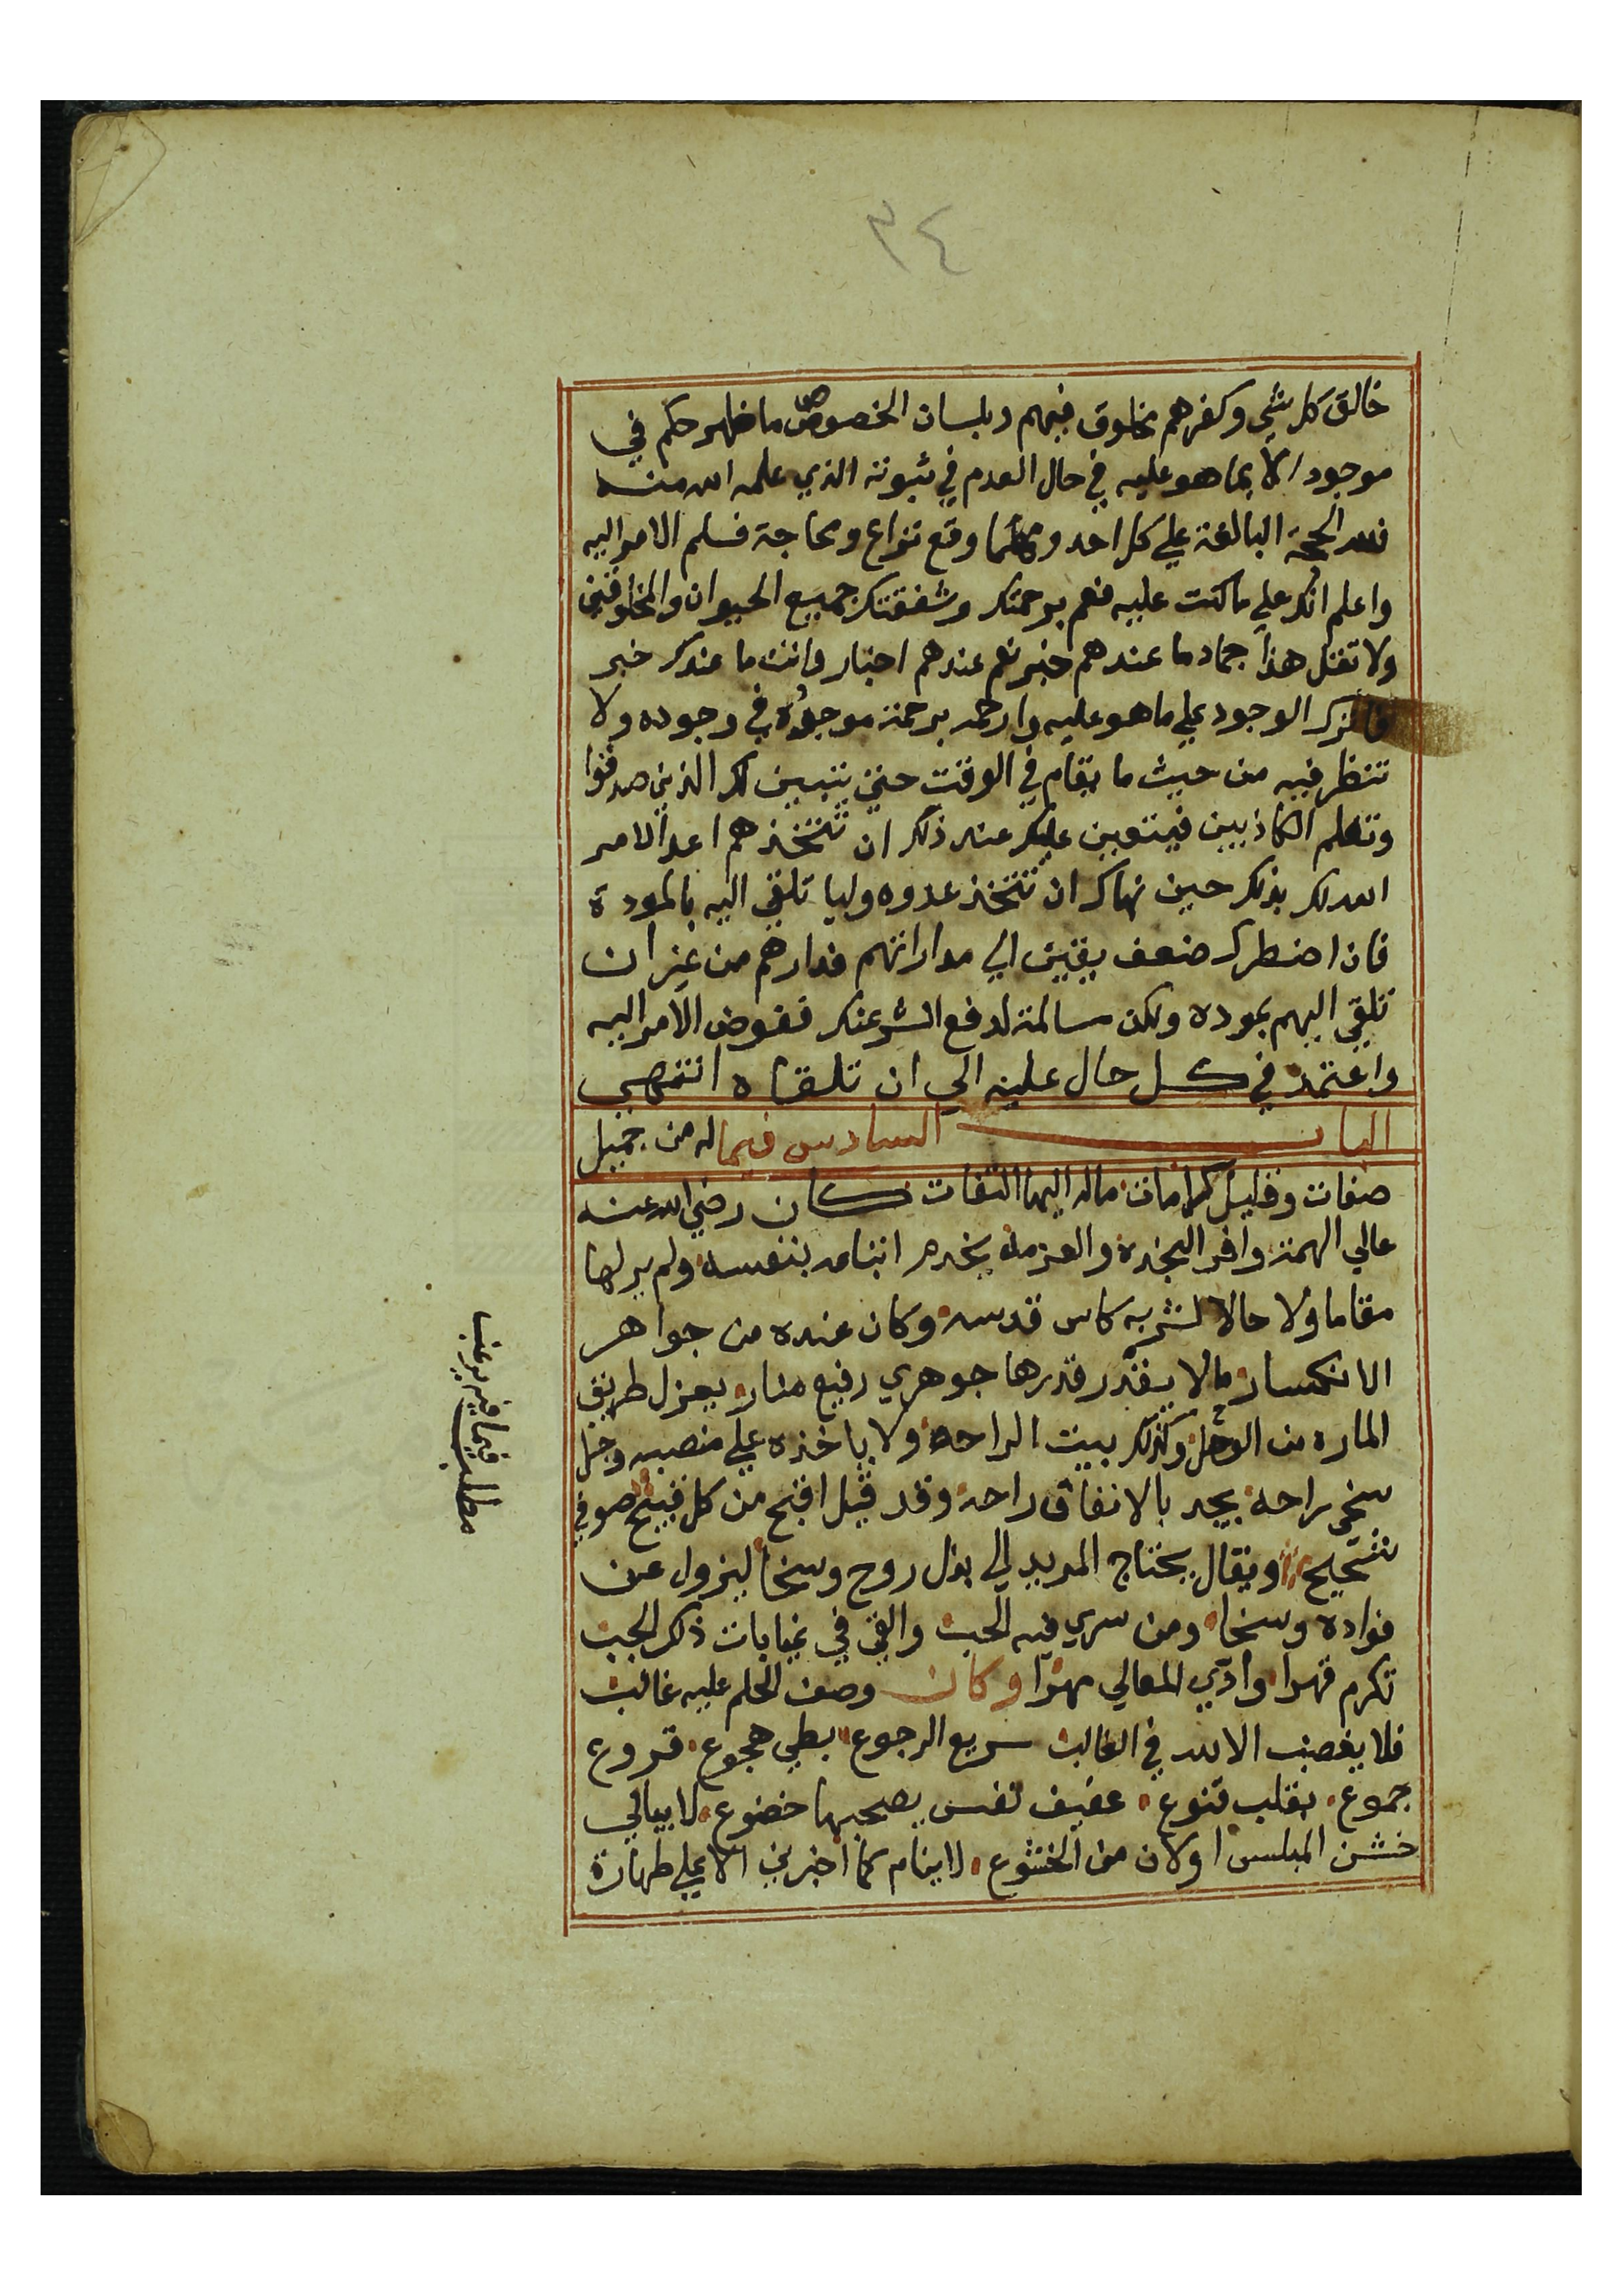 ٣٤
خالق كل شي وكفرهم مخلوق فيهم وبلسان الخصوص ما ظهر حكم في
موجود الا بما هو عليه في حال العدم في ثبوته الذي علمه الله منه
فلله الحجة البالغة علي كل احد ومهما وقع نزاع ومحاجة فسلم الامر اليه
واعلم انك علي ما كنت عليه فعم برحمتك وشفقتك جميع الحيوان والمخلوقين
ولا تقل هذا جماد ما عندهم خبر نعم عندهم اخبار وانت ما عندك خبر
فاترك الوجود علي ما هو عليه وارحمه برحمة موجده في وجوده ولا
تنظر فيه من حيث ما يقام في الوقت حتي يتبين لك الذين صدقوا
وتعلم الكاذبين فيتعين عليك عند ذلك ان تتخذهم اعدا لامر
الله لك بذلك حين نهاك ان تتخذ عدوه وليا تلقي اليه بالمودة
فان اضطرك ضعف يقين الي مداراتهم فدارهم من غير ان
تلقي اليهم بموده ولكن مسالمة لدفع الشر عنك ففوض الامر اليه
واعتمد في كل حال عليه الي ان تلقاه انتهي
الباب السادس فيما له من جميل
صفات وقليل كرامات ما له اليها التفات كان رضي الله عنه
عالي الهمة وافر النجده والعزمة يخدم اتباعه بنفسه ولم ير لها
مقاما ولا حالا لشربه كاس قدسه وكان عنده من جواهر
الانكسار ما لا يقدر قدرها جوهري رفيع منار يعزل طريق
الماره من الوحل وكذلك بيت الراحه ولا ياخذه علي منصبه وجل
سخي براحة يجد بالانفاق راحه وقد قيل اقبح من كل قبيح صوفي
شحيح ويقال يحتاج المريد الي بذل روح وسخا ليزول عن
فواده وسخا ومن سري فيه الحب والقي في غيابات ذلك الجب
تكرم قهرا وادي للمعالي مهرا وكان وصف الحلم عليه غالب
فلا يغضب الا لله في الغالب سريع الرجوع بطي هجوع قروع
جموع بقلب قنوع عفيف نفس يصحبها خضوع لا يبالي
خشن الملبس او لان من الخشوع لا ينام كما اخبرني الا علي طهارة
مطلب فيما فيه يرغب